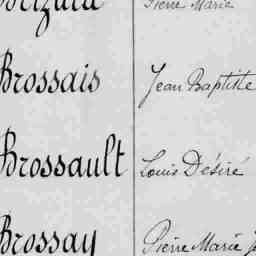 Pierre Marie
Brossais Jean Baptiste
Brossault Louis Désiré
Brossay Pierre Marie